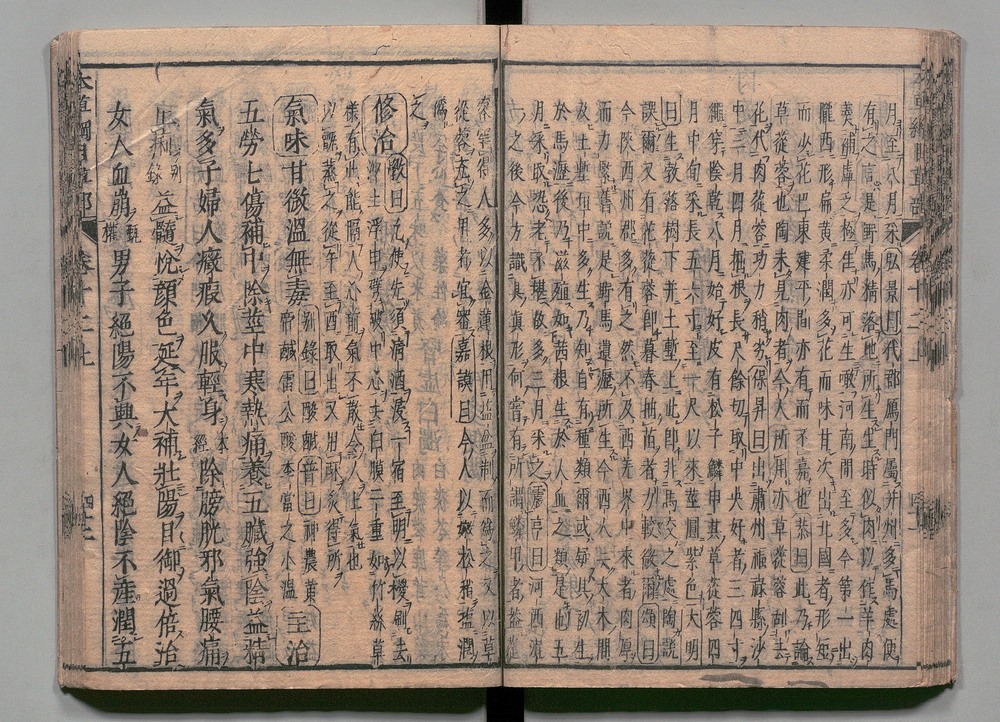 月至八月采弘景曰代郡鴈門屬并州多馬處便
有之言是野馬精落地所生生時似肉以作羊肉
羹補虛乏極佳亦可生噉河南間至多今第一出
隴西形扁黄柔潤多花而味甘次出北國者形短
而少花巴東建平間亦有而不嘉也恭曰此乃論
草蓯蓉也陶未見肉者今人所用亦草蓯蓉刮去
花代肉蓯蓉功力稍劣保昇曰出肅州福祿縣沙
中三月四月掘根長尺餘切取中央好者三四寸
繩穿陰乾八月始好皮有松子鱗甲其草蓯蓉四
月中旬采長五六寸至一尺以來莖圓紫色大明
曰生敎落樹下并土塹上此即非馬交之處陶說
誤爾又有花蓯蓉即暮春抽苗者力較微爾頌曰
今陝西州郡多有之然不及西羌界中來者肉厚
而力緊舊說是野馬遺瀝所生今西人云大木間
及土塹垣中多生乃知自有種類爾或疑其初生
於馬瀝後乃滋殖如茜根生於人血之類是也五
月采取恐老不堪故多三月采之震亨曰河西混
一之後今方識其真形何嘗有所謂鱗甲者蓋蓯
蓉罕得人多以金蓮根用鹽盆制而爲之又以草
蓯蓉充之用者宜審嘉謨曰今人以嫩松稍鹽潤
僞之
修治 斅曰凡使先須清酒浸一宿至明以椶刷去
沙土浮甲劈破中心去白膜一重如竹絲草
樣有此能隔人心前氣不散令人上氣也
以甑蒸之從午至酉取出又用酥炙得所
氣味 甘微溫無毒 別錄曰酸鹹普曰神農黄
帝鹹雷公酸李當之小溫 主治
五勞七傷補中除莖中寒熱痛養五臟強陰益精
氣多子婦人癥瘕久服輕身 本經 除膀胱邪氣腰痛
止痢 別錄 益髓悅顔色延年大補壯陽日御過倍治
女人血崩 甄權 男子絕陽不興女人絕陰不產潤五